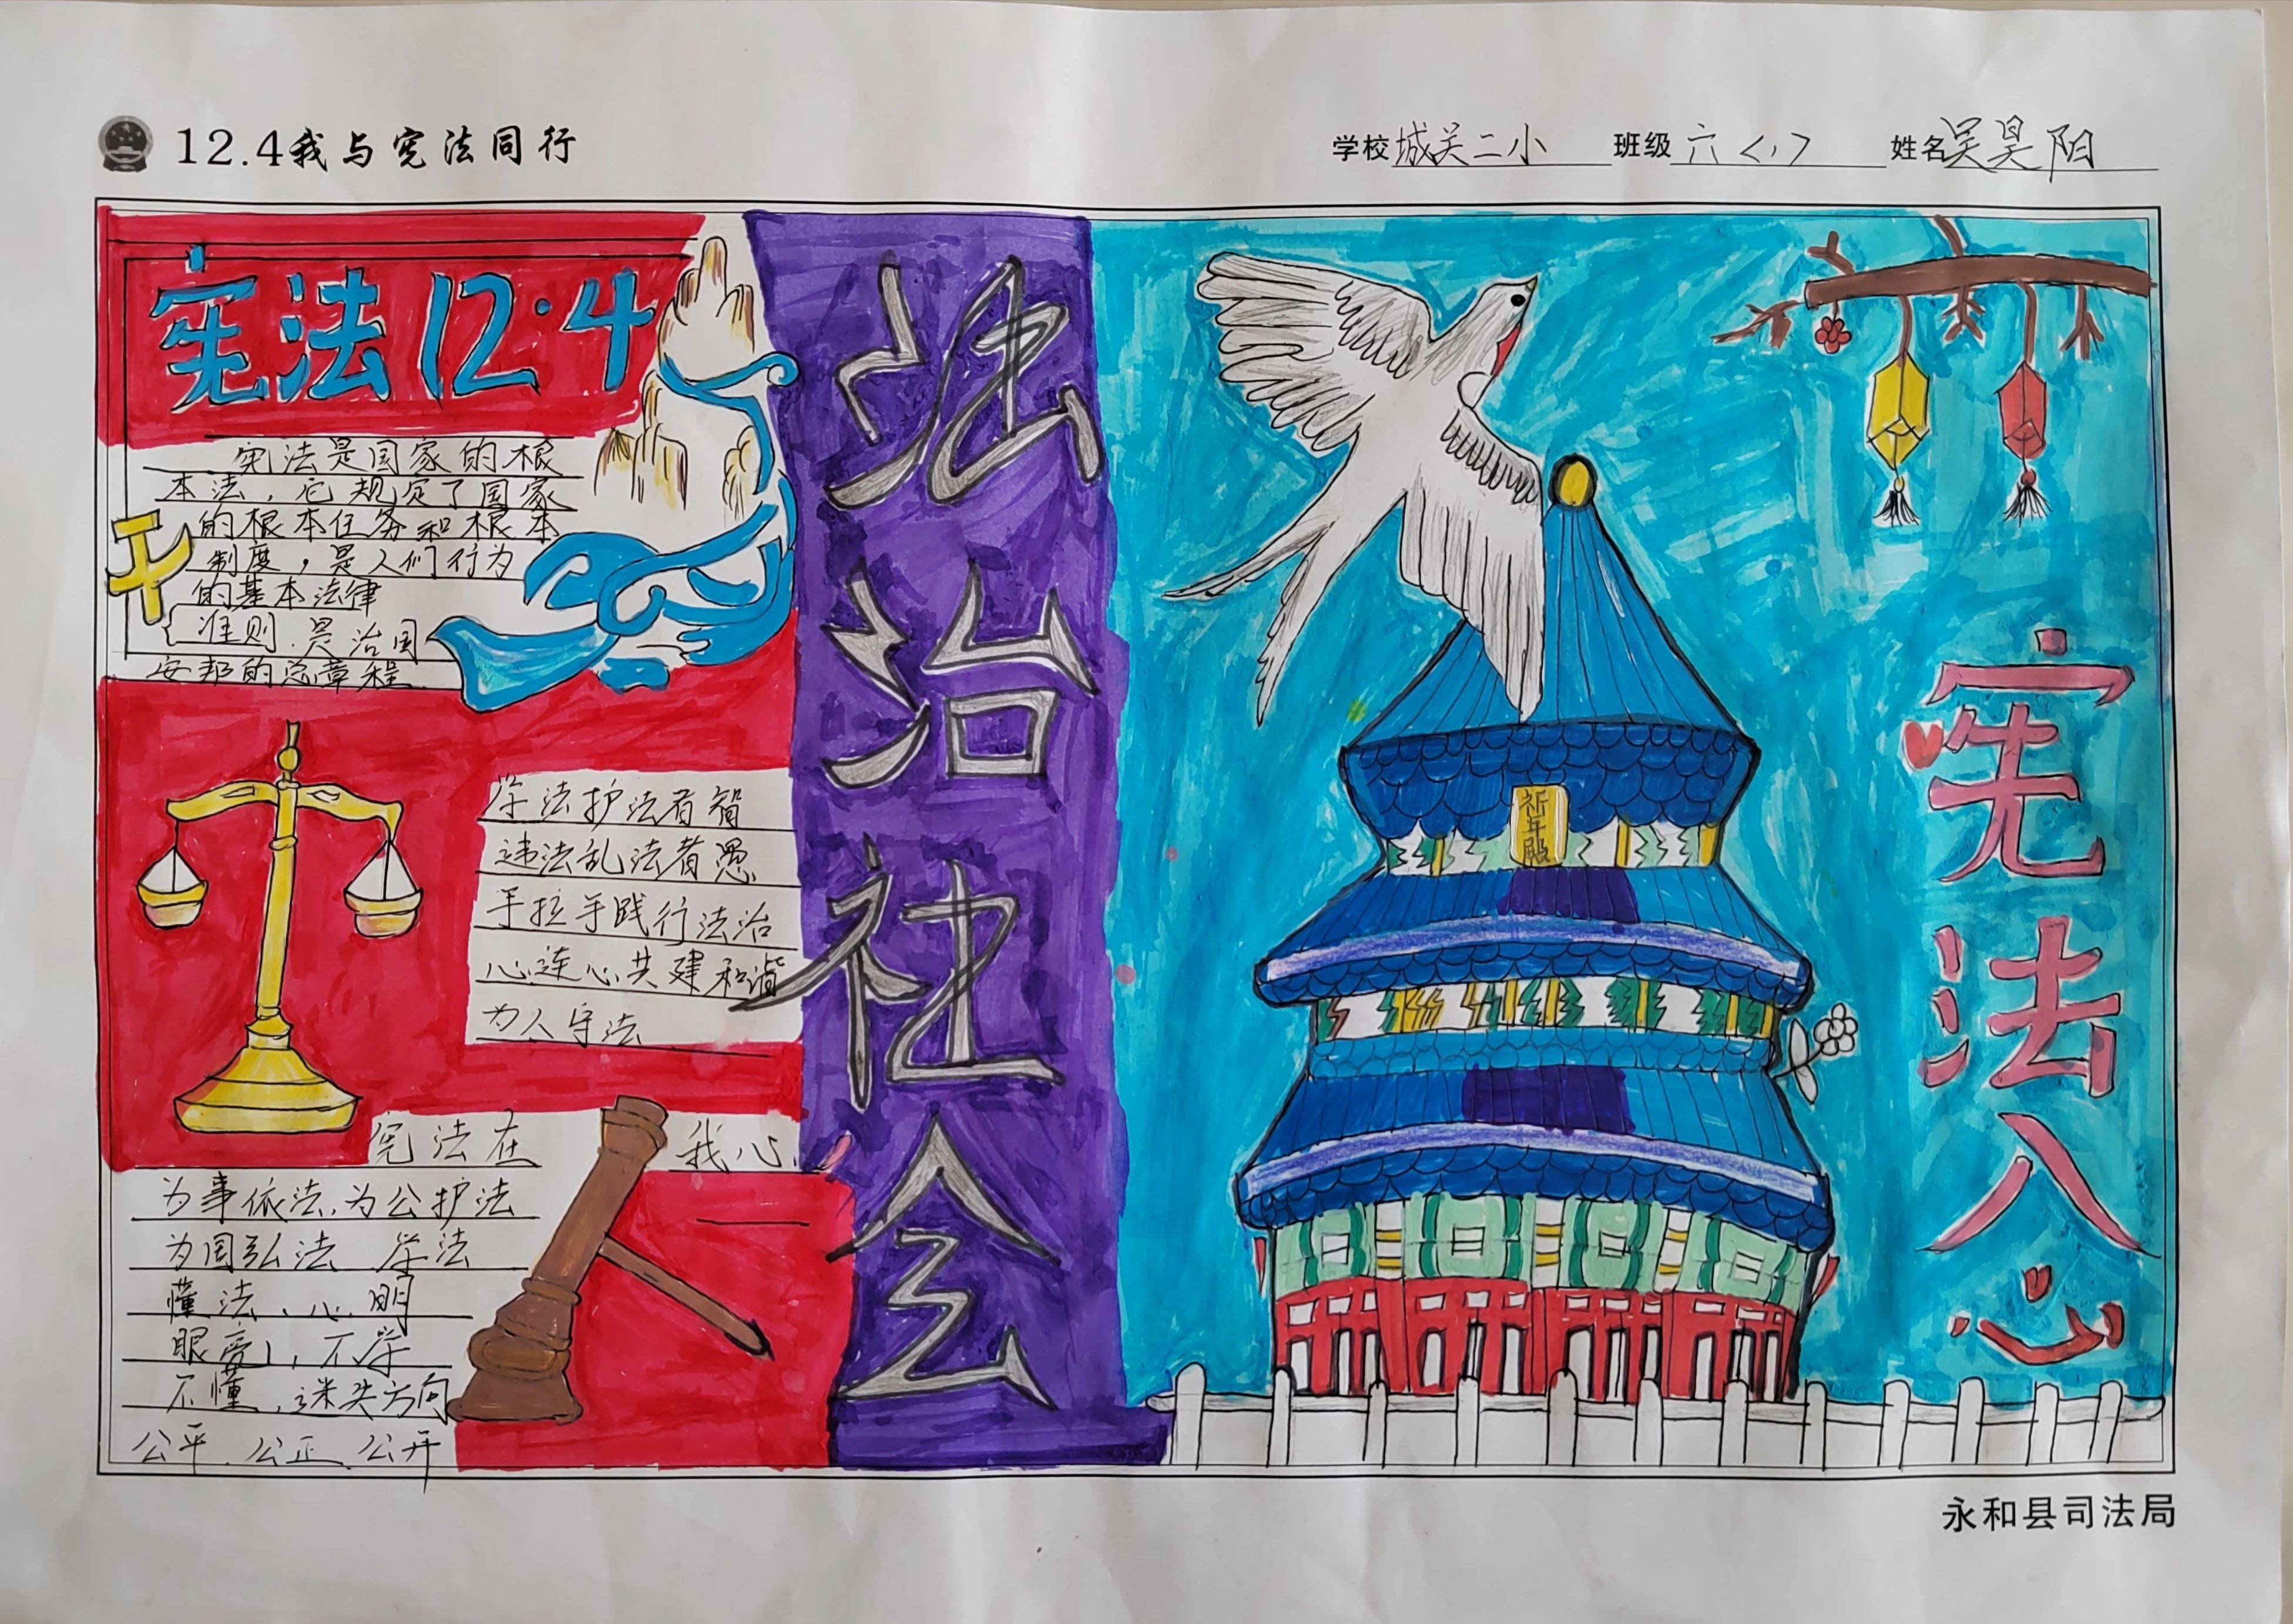 12.4我与宪法同行
学校 城关二小 班级 六<1> 姓名 吴昊阳
宪法12·4
宪法是国家的根
本法，它规定了国家
的根本任务和根本
制度，是人们行为
的基本法律
准则.是治国
安邦的总章程
学法护法者智
违法乱法者愚
手拉手践行法治
心连心共建和谐
为人守法
宪法在我心.
为事依法、为公护法
为国弘法 学法
懂法、心明
眼亮，不学
不懂，迷失方向
公平.公正.公开
法治社会
祈年殿
宪法入心
永和县司法局